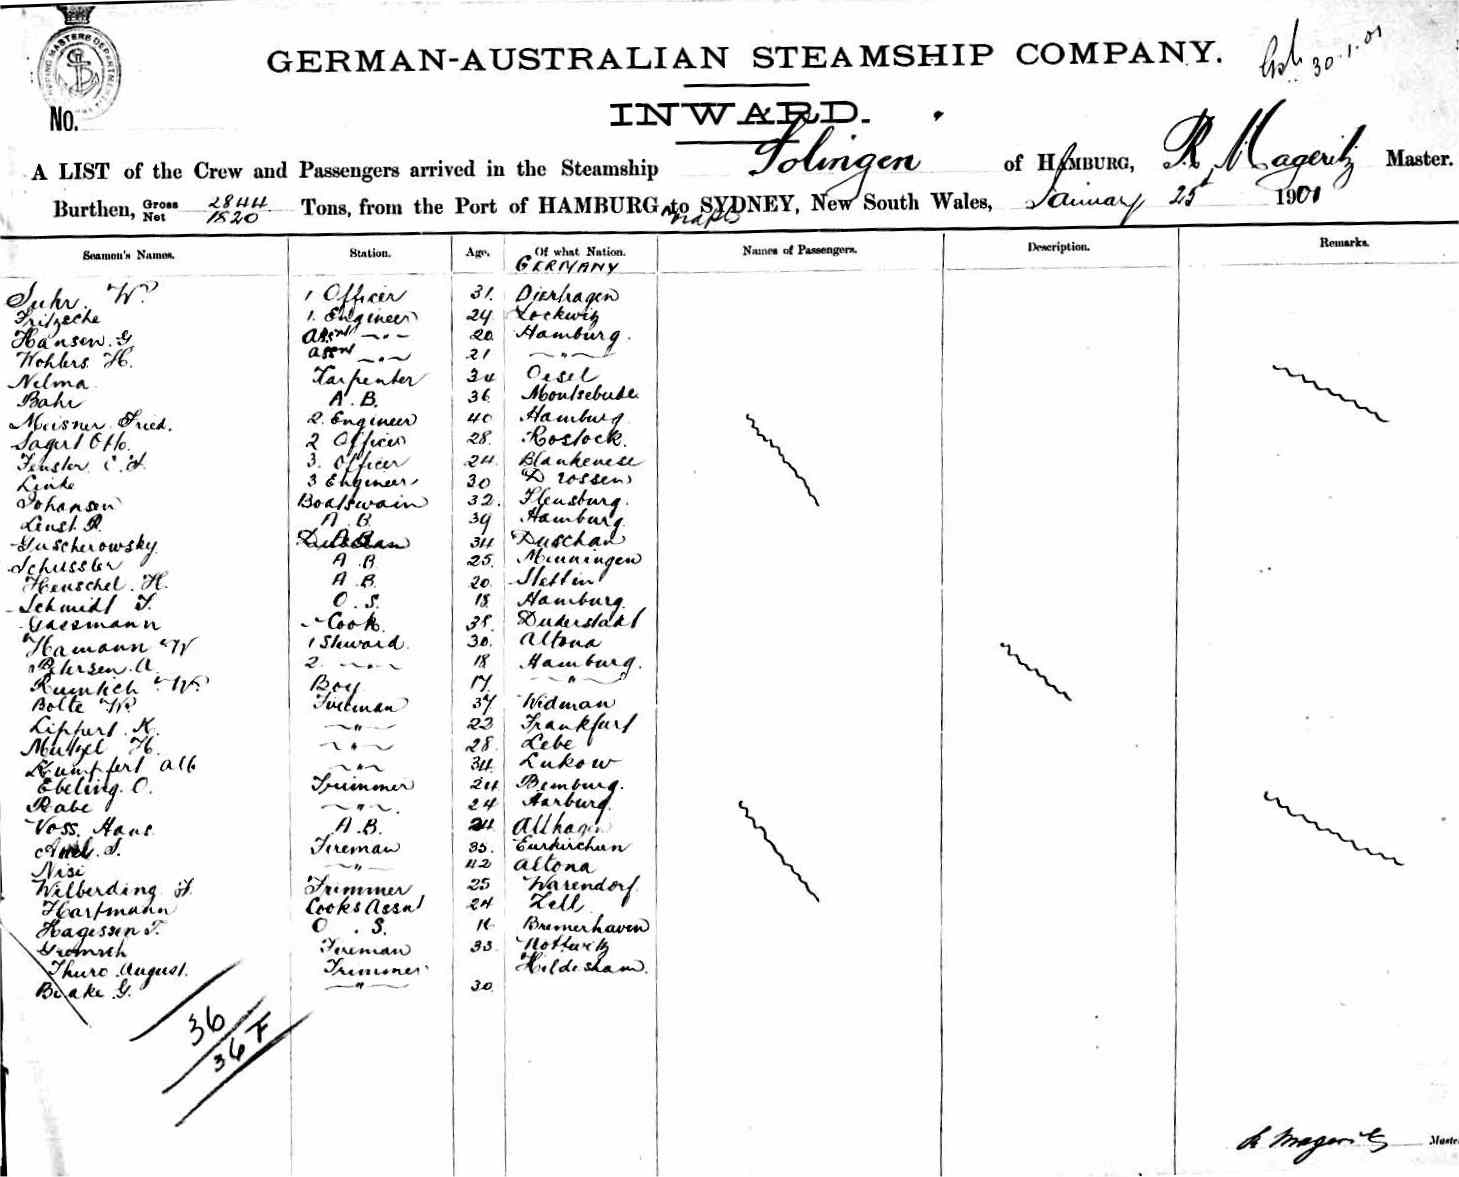 SHIPPING MASTERS DEPARTMENT
GERMAN-AUSTRALIAN STEAMSHIP COMPANY.
30.1.01
No.
INWARD.
A LIST of the Crew and Passengers arrived in the Steamship Solingen of HAMBURG, R. Mageritz Master.
Burthen, Gross 2844 Net 1820 Tons, from the Port of HAMBURG to SYDNEY, New South Wales, January 25th 1901
Seamen's Names. Station. Age. Of what Nation. Names of Passengers. Description. Remarks.
GERMANY
Suhr. W. 1 Officer 31. Dierhagen
Fritzsche 1. Engineer 24 Lockwitz
Hansen. G Assnt —"— 20 Hamburg.
Wohlers H. assnt —"— 21 —"—
Nelma Karpenter 34 Oesel
Bahr A.B. 36
Meisner Fried. 2. Engineer 40 Hamburg
Sagert Otto. 2 Officer 28. Rostock.
Fenster C. H. 3. Officer 24 Blankenese
Linke 3 Engineer 30 Drossen
Johansen Boatswain 32. Flensburg.
Lenst R. A.B. 39 Hamburg
Guscherowsky A.B. 34 Duschan
Schussler A.B. 25. Meiningen
Henschel. H. A.B. 20. Stettin
Schmidt F. O.S. 18 Hamburg
Gassmann Cook 38. Duderstadt
Hamann W 1 Steward. 30. Altona
Petersen. A. 2. —"— 18 Hamburg.
W. Boy 17. —"—
Bolte W. Fireman 37 Widman
Lippert. K. —"— 23 Frankfurt
Mutzel H. —"— 28. Lebe
Kumpfert Alb —"— 34 Lukow
Ebeling. O. Trimmer 24 Bernburg.
Rabe —"— 24 Harburg
Voss. Hans A.B. 24 Althagen
Fireman 35. Eurkirchen
Nisi —"— 42 Altona
Wilberding F. Trimmer 25 Warendorf
Hartmann Cooks Assnt 24 Zell
Hagessen F. O.S. 16 Bremerhaven
Gromsch Fireman 33. Nottwitz
Thuro August. Trimmer Hildesham.
Beake G. —"— 30
36
36 F
R Mageritz Master